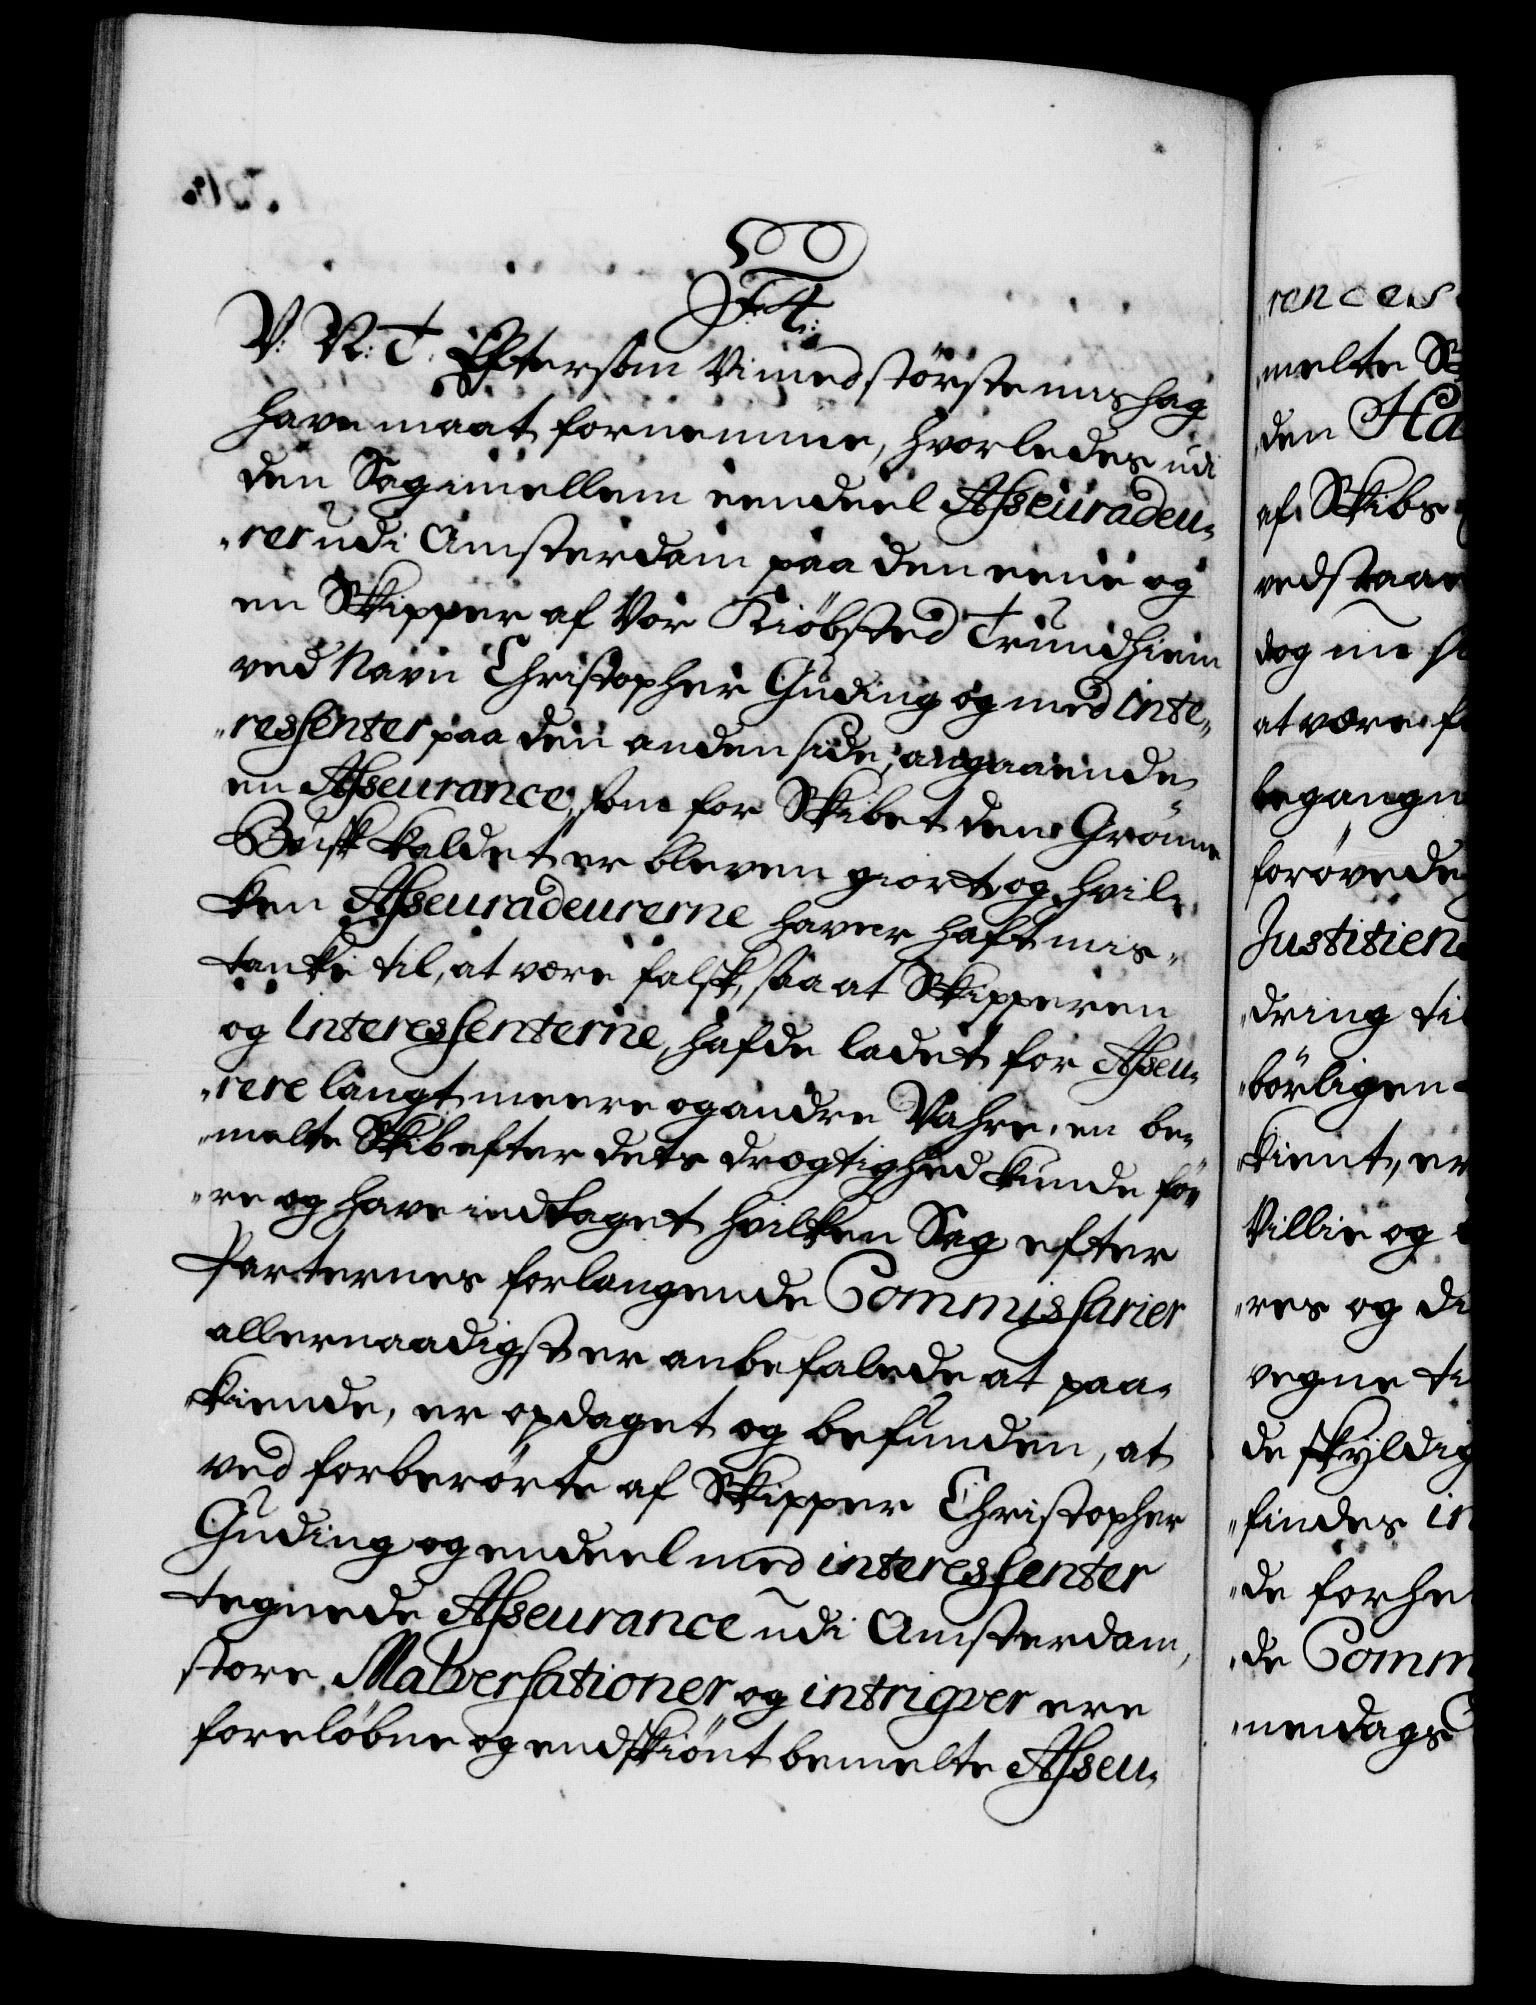 F: 4.
V: N: T. Eftersom Vi med störste mishag
have maat fornemme, hvorledes udi
den Sag imellem eendeel Asseuradeu-
rer udi Amsterdam paa den eene og
en Skipper af Vor Kiöbsted Trundhiem
ved Navn Christopher Guding og med inte-
ressenter paa den anden side, angaaende
en Asseurance, som for Skibet den Grönne
Busk kaldet er bleven giort og hvil-
ken Asseuradeurerne haver haft mis-
tanke til, at være falsk, saa at Skipperen
og Interessenterne, hafde ladet for Asseu-
rere langt meere og andre Vahre, en be-
melte Skib efter dets drægtighed kunde fö-
re og have indtaget hvilken Sag efter
Parternes forlangende Commissarier
allernaadigst er anbefalede at paa-
kiende, er opdaget og befunden, at
ved forberörte af Skipper Christopher
Guding og endeel med interessenter
tegnede Asseurance udi Amsterdam,
store Malversationer og intriqver ere
foreløbne og endskiönt bemelte Asseu-
rences
melte
den
af Skibs
vedstaae
dog
at være
begangn
forövede
Justitien
dring
börligen
kient, er
Villie og
res og
vegne
de skyldig
findes
de
de Comm
nendags